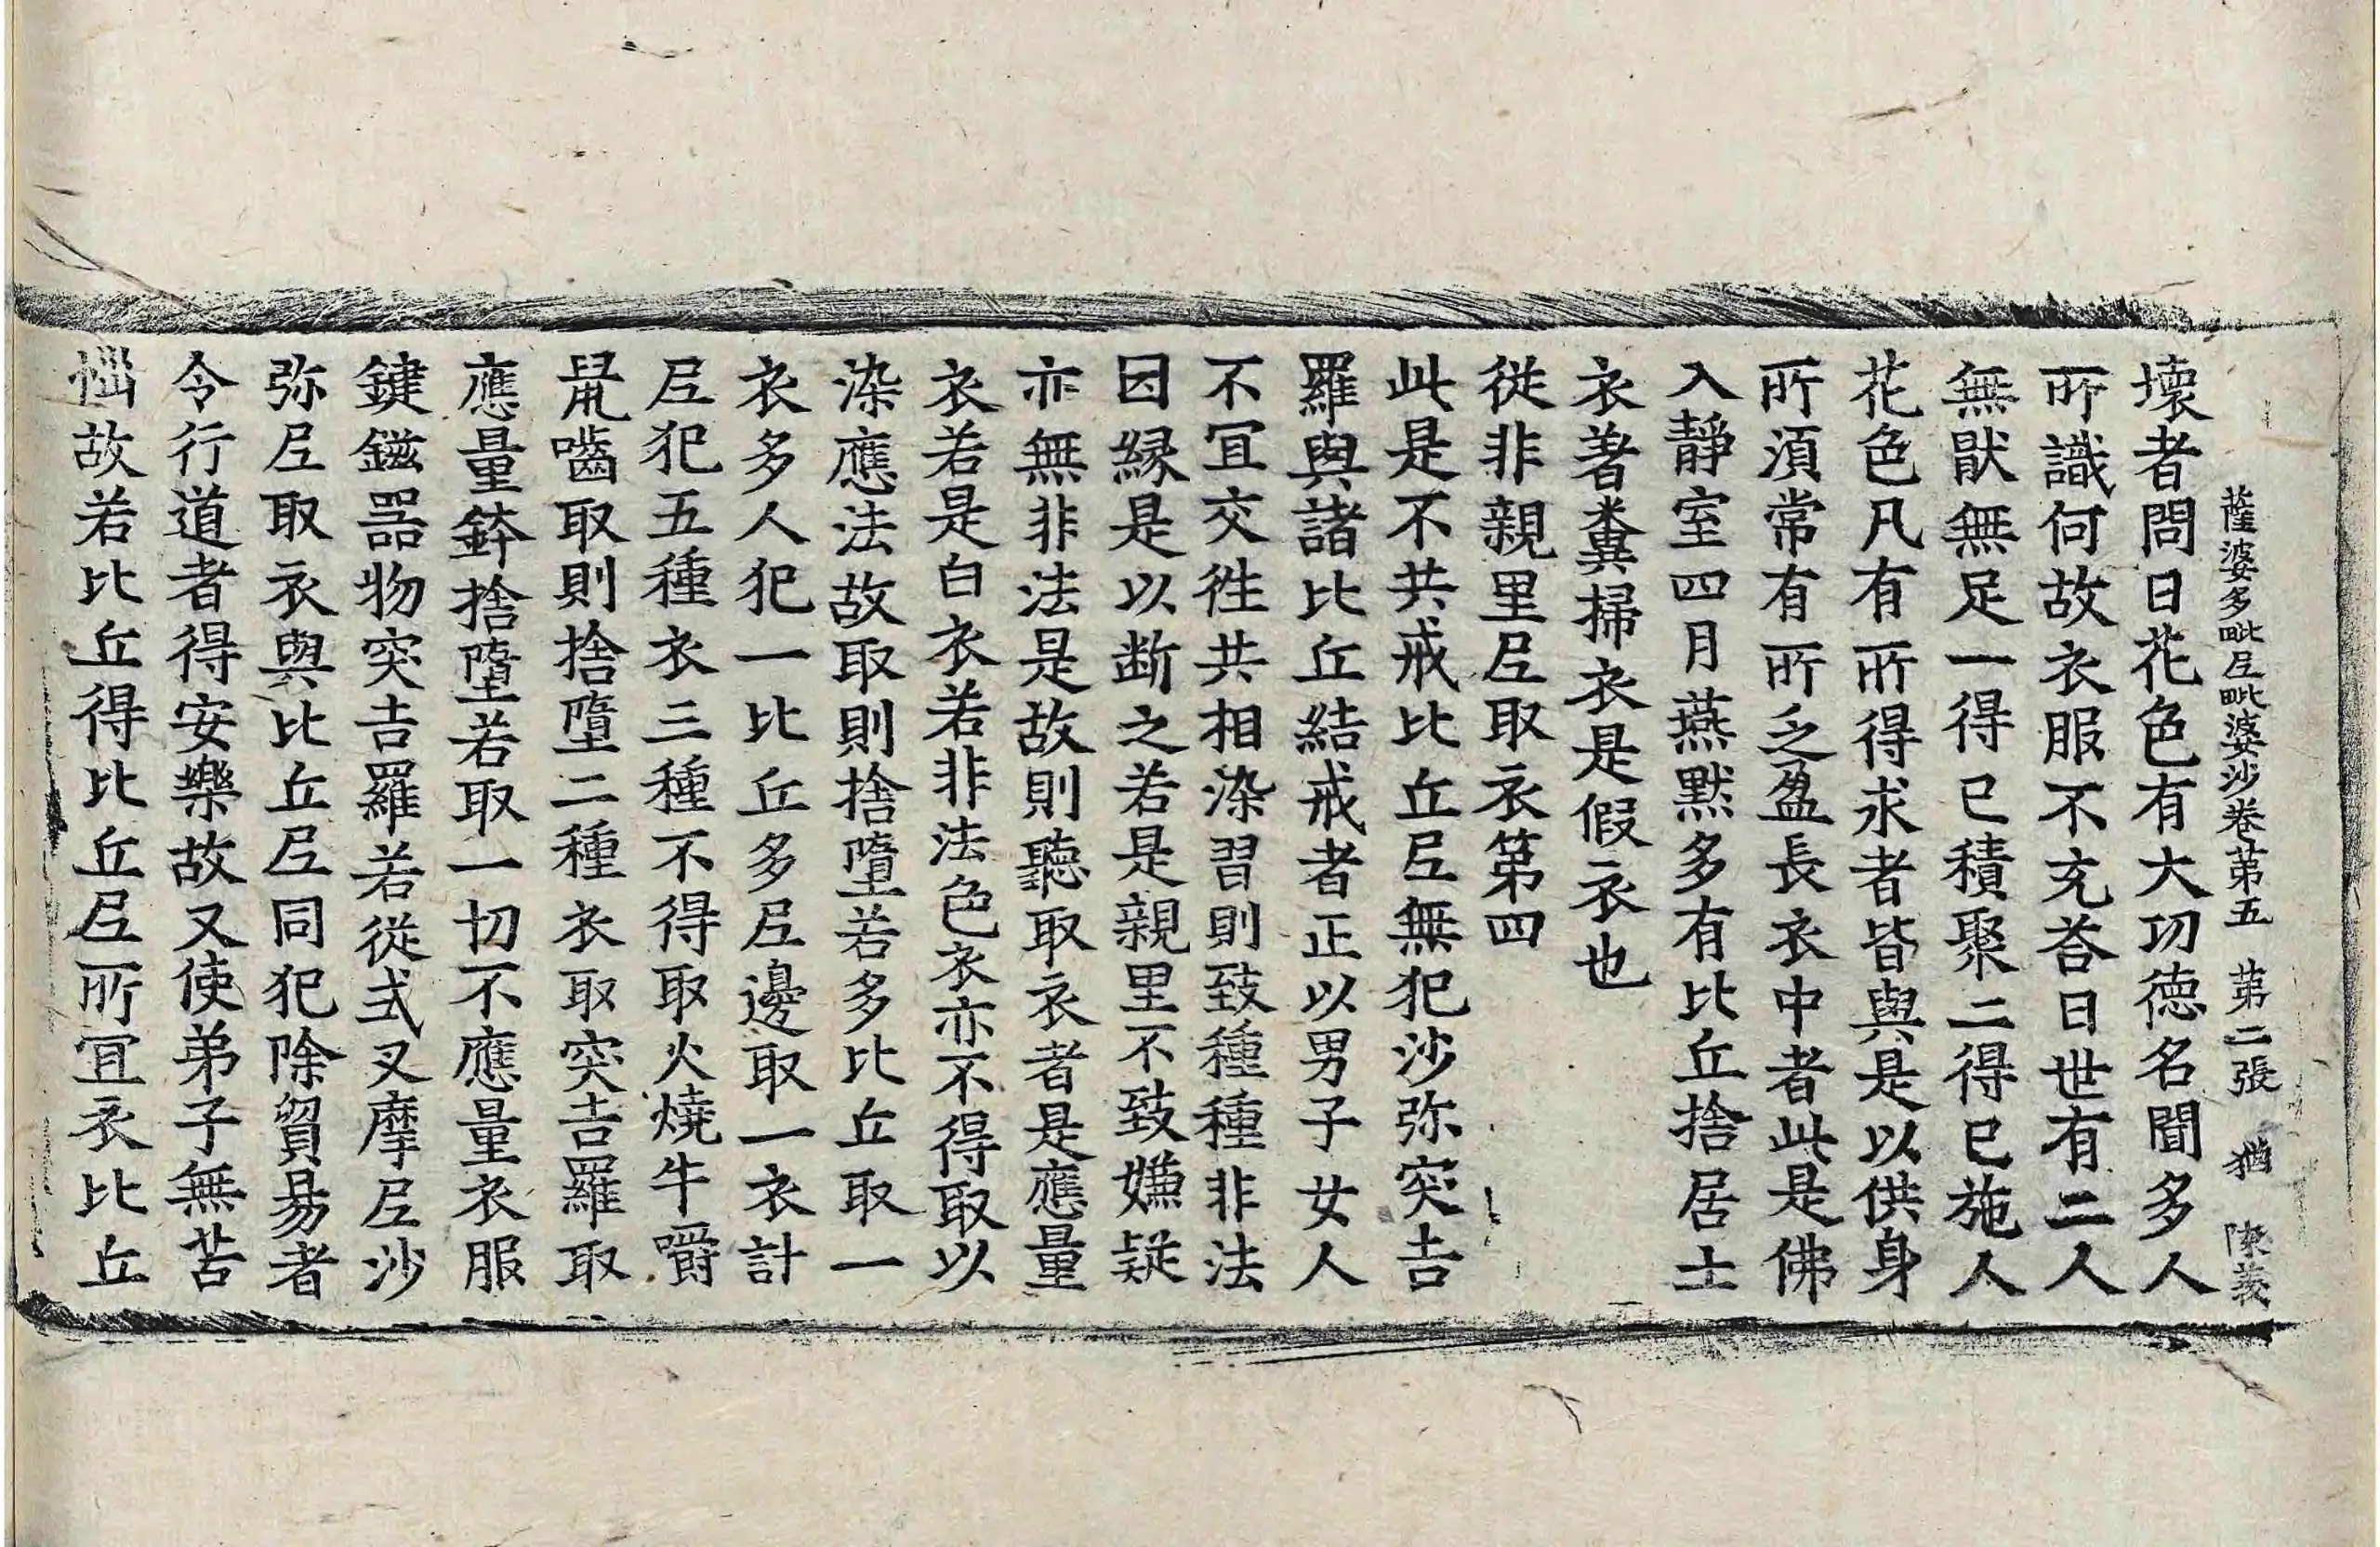 薩婆多毗尼毗婆沙卷苐五　苐二張　猶　陳義
壞者問曰花色有大功德名聞多人
所識何故衣服不充荅曰世有二人
無猒無足一得已積聚二得已施人
花色凡有所得求者皆與是以供身
所湏常有所乏盈長衣中者此是佛
入靜室四月燕默多有比丘捨居士
衣著糞掃衣是假衣也
從非親里尼取衣第四
此是不共戒比丘尼無犯沙弥突吉
羅與諸比丘結戒者正以男子女人
不冝交徃共相染習則致種種非法
因緣是以断之若是親里不致嫌疑
亦無非法是故則聽取衣者是應量
衣若是白衣若非法色衣亦不得取以
染應法故取則捨墮若多比丘取一
衣多人犯一比丘多尼邊取一衣計
尼犯五種衣三種不得取火燒牛嚼
鼠嚙取則捨墮二種衣取突吉羅取
應量鉢捨墮若取一切不應量衣服
鍵鎡器物突吉羅若從式叉摩尼沙
弥尼取衣與比丘尼同犯除貿易者
令行道者得安樂故又使弟子無苦
惱故若比丘得比丘尼所冝衣比丘